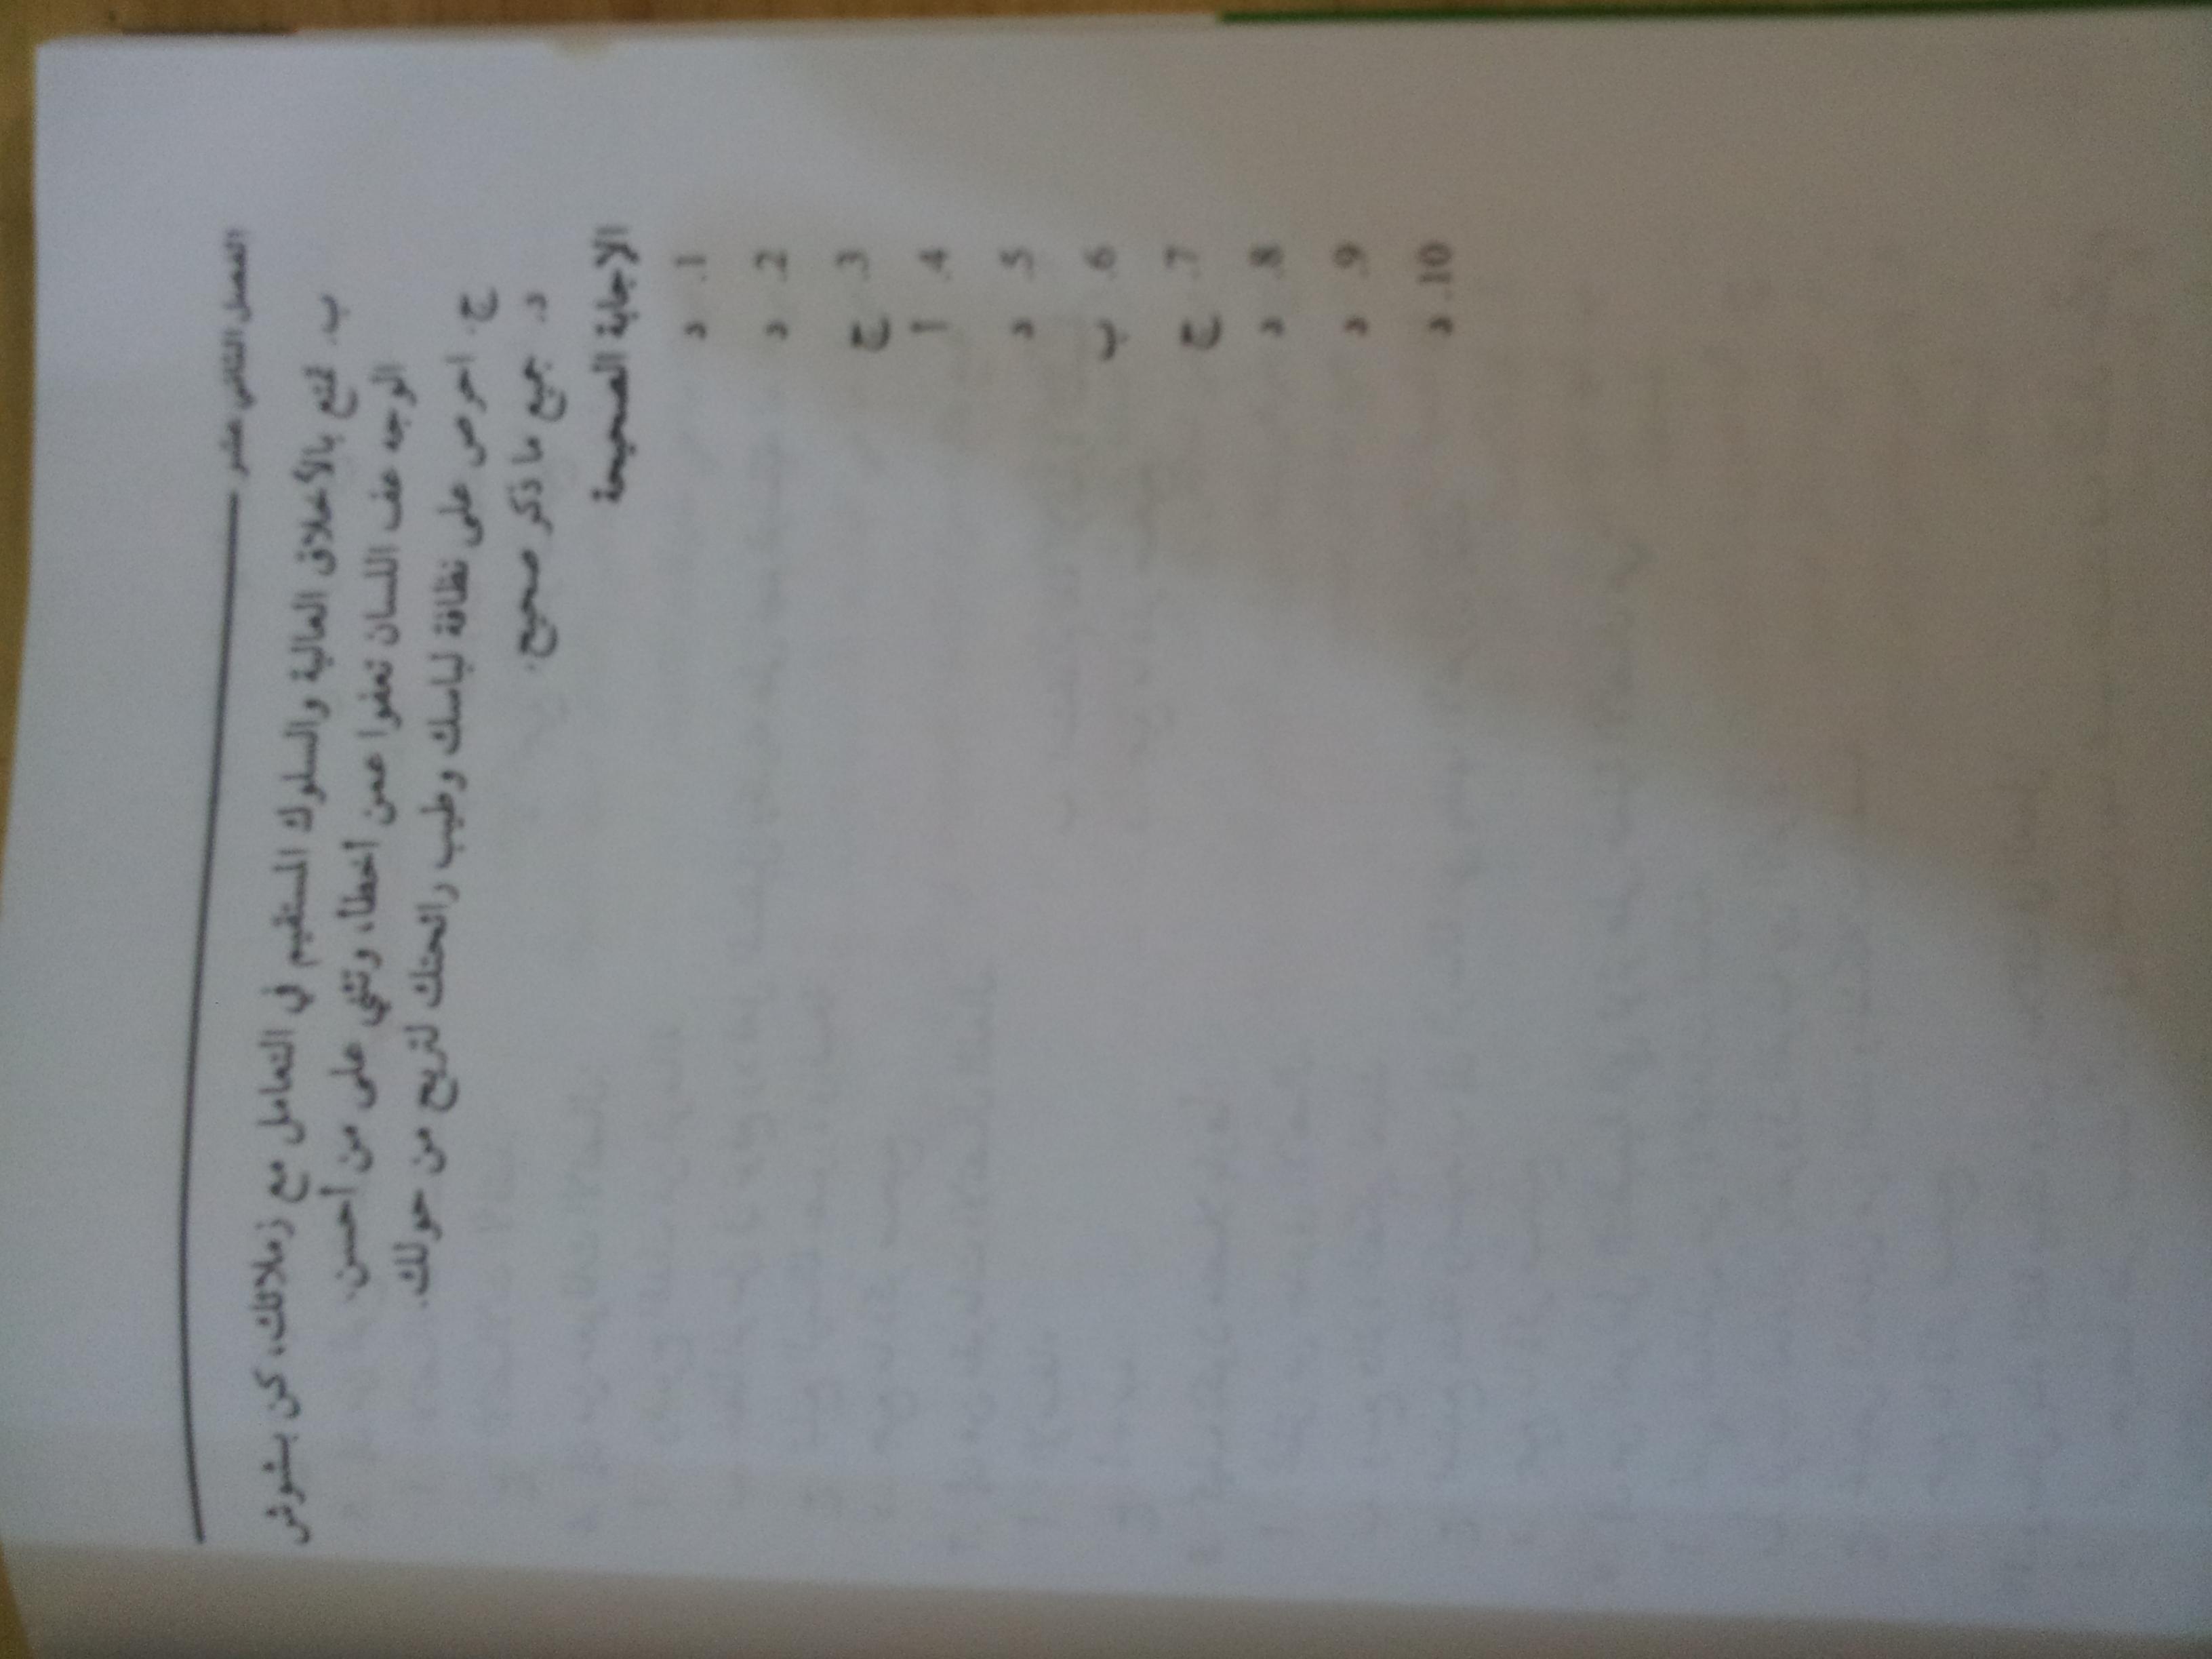 الفصل الثاني عشر
ب. تمتع بالأخلاق العالية والسلوك المستقيم في التعامل مع زملائك، كن بشوش
الوجه عف اللسان تعفوا عمن أخطأ، وتثني على من أحسن.
ج. احرص على نظافة لباسك وطيب رائحتك لتريح من حولك.
د. جميع ما ذكر صحيح.
الاجابة الصحيحة
1. د
2. د
3. ج
4. أ
5. د
6. ب
7. ج
8. د
9. د
10. د